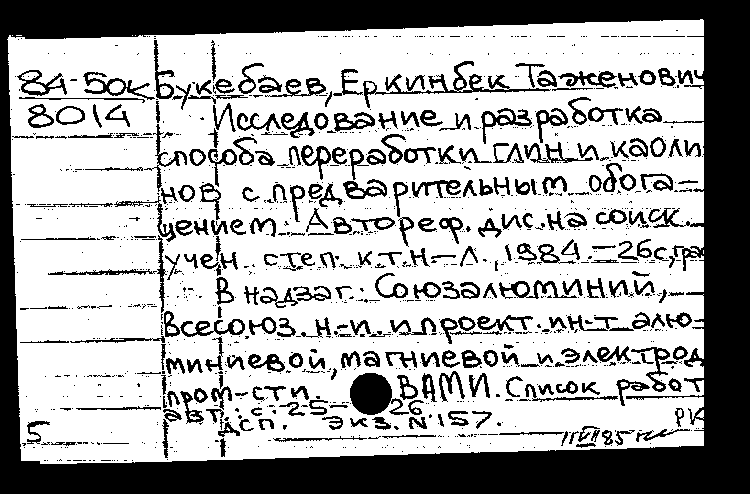 84-50к Букебаев, Еркинбек Таженович
8014 Исследование и разработка
способа переработки глин и каоли
нов с предварительным обога-
щением. Автореф. дис. на соиск.
учен. степ. к.т.н - Л., 1984. - 26с, гра
В надзаг.: Союзалюминий,
Всесоюз. н.-и. и проект. ин-т алю-
миниевой, магниевой и электрод
пром-сти. ВАМИ. Список работ
авт.: с. 25-26
5 дсп. экз. № 157. РК
11 VII 85